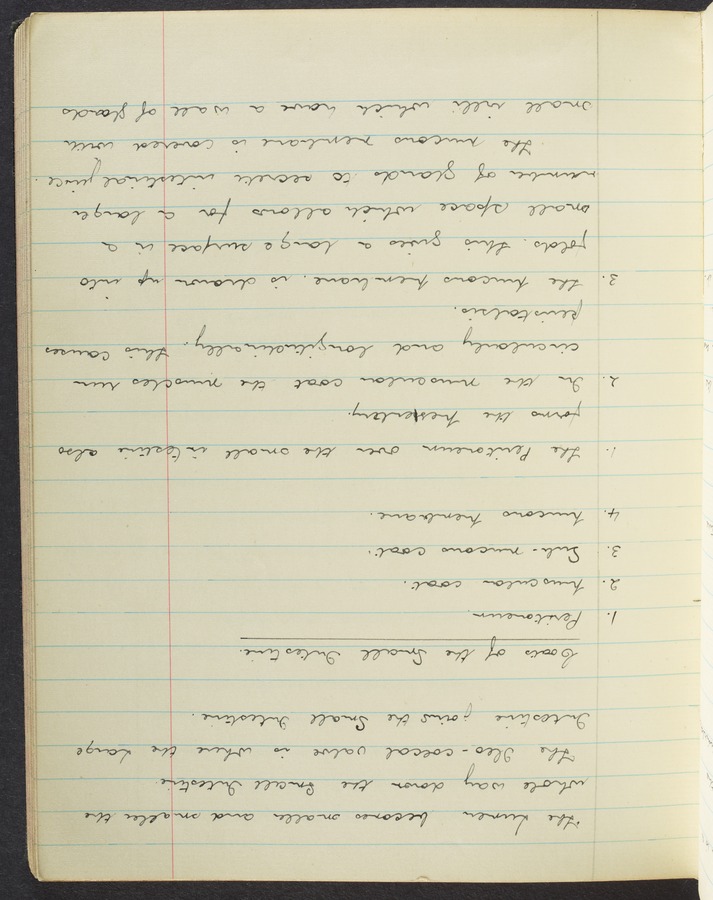 The Lumen becomes smaller and smaller the
whole way down the Small Intestine.
The Ileo-coecal valve is where the Large
Intestine joins the Small Intestine.
Coats of the Small Intestine.
1. Peritoneum.
2. Muscular coat.
3. Sub-mucous coat.
4. Mucous Membrane.
1. The Peritoneum over the small intestine also
forms the Mesentery.
2. In the muscular coat the muscles run
circularly and longitudinally. This causes
peristalsis.
3. The Mucous Membrane is drawn up into
folds. This gives a large surface in a
small space which allows for a larger
number of glands to secrete intestinal juice.
The mucous membrane is covered with
small villi which have a wall of glands